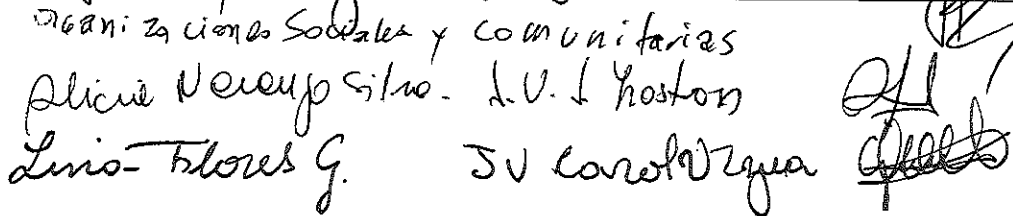 Organizaciones Sociales y comunitarias
Alicia Naranjo Silva. J.V.
Flores G. JV Carol Urzua